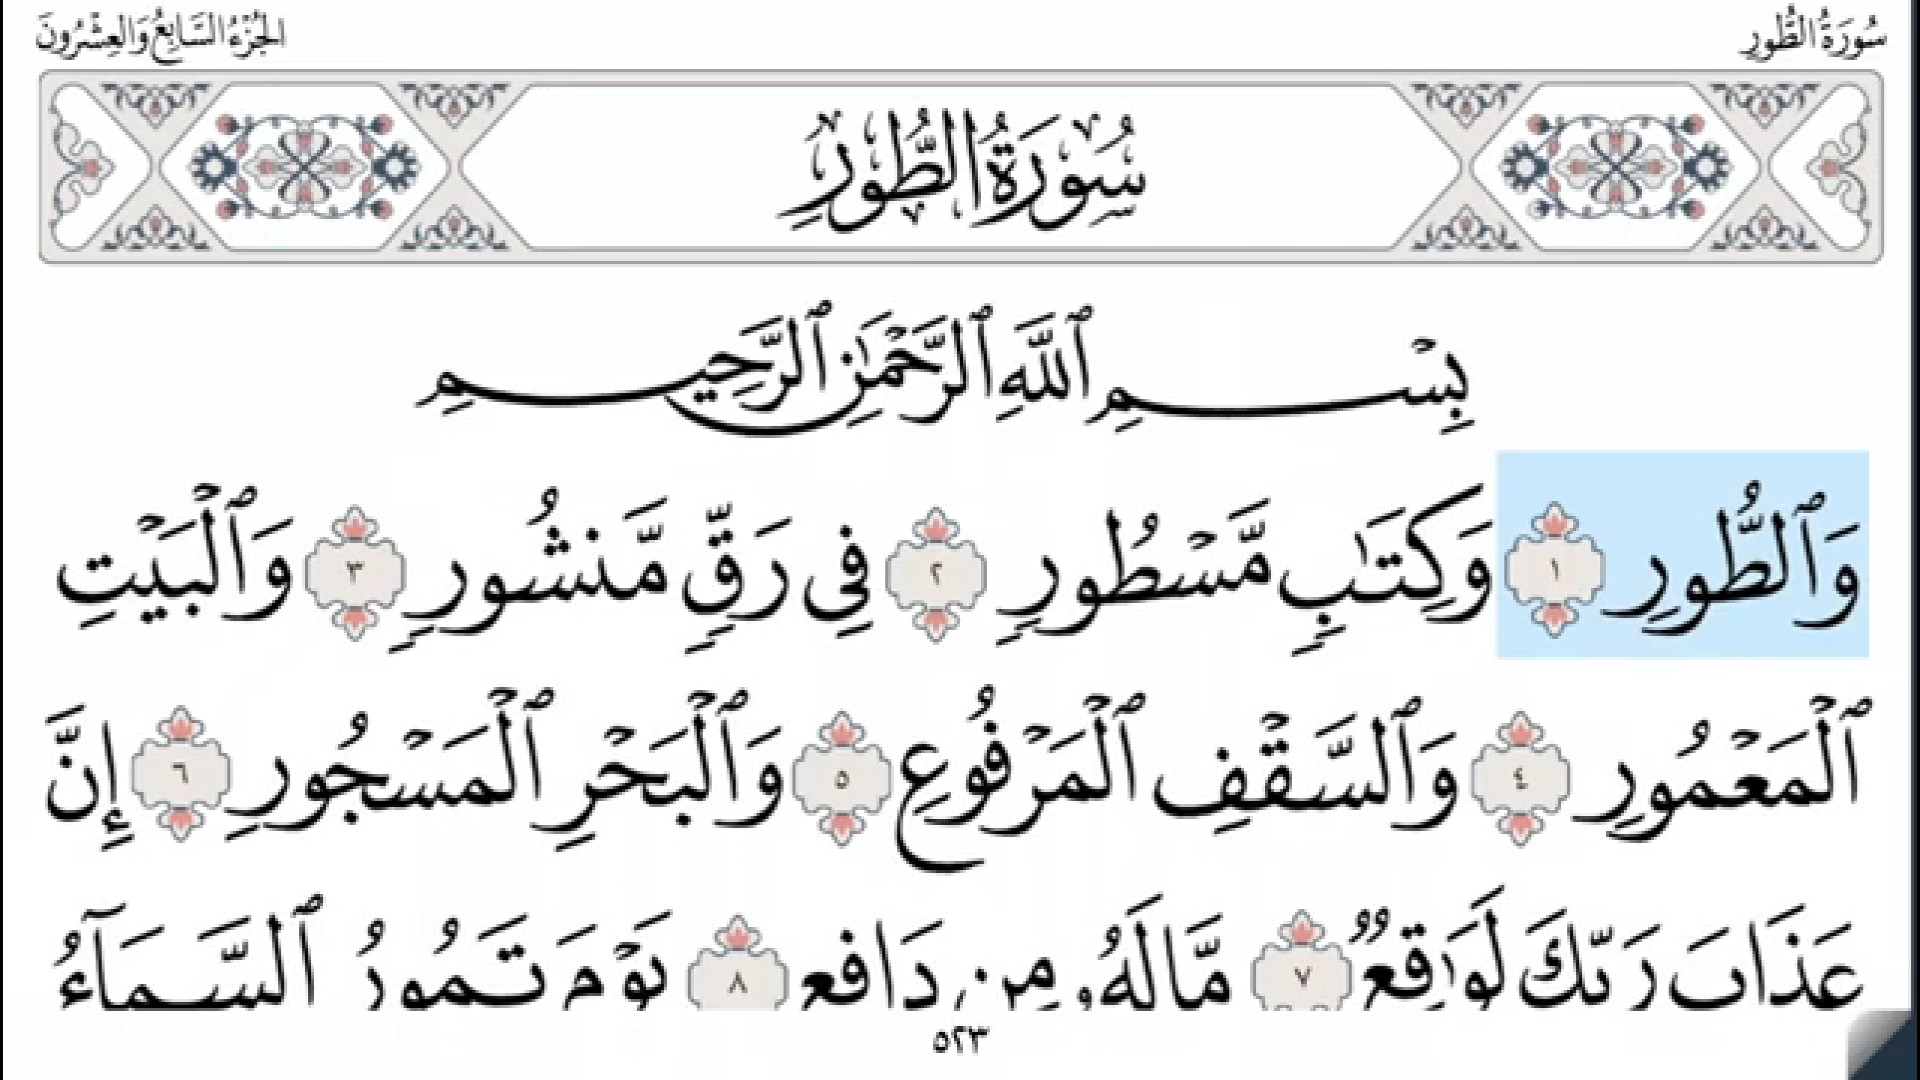 سُورَةُ الطُّورِ الجُزْءُ السَّابِعُ وَالعِشْرُونَ
سُورَةُ الطُّورِ
بِسْمِ ٱللَّهِ ٱلرَّحْمَٰنِ ٱلرَّحِيمِ
وَٱلطُّورِ ١ وَكِتَٰبٍ مَّسْطُورٍ ٢ فِى رَقٍّ مَّنشُورٍ ٣ وَٱلْبَيْتِ
ٱلْمَعْمُورِ ٤ وَٱلسَّقْفِ ٱلْمَرْفُوعِ ٥ وَٱلْبَحْرِ ٱلْمَسْجُورِ ٦ إِنَّ
عَذَابَ رَبِّكَ لَوَٰقِعٌ ٧ مَّا لَهُۥ مِن دَافِعٍ ٨ يَوْمَ تَمُورُ ٱلسَّمَآءُ
٥٢٣